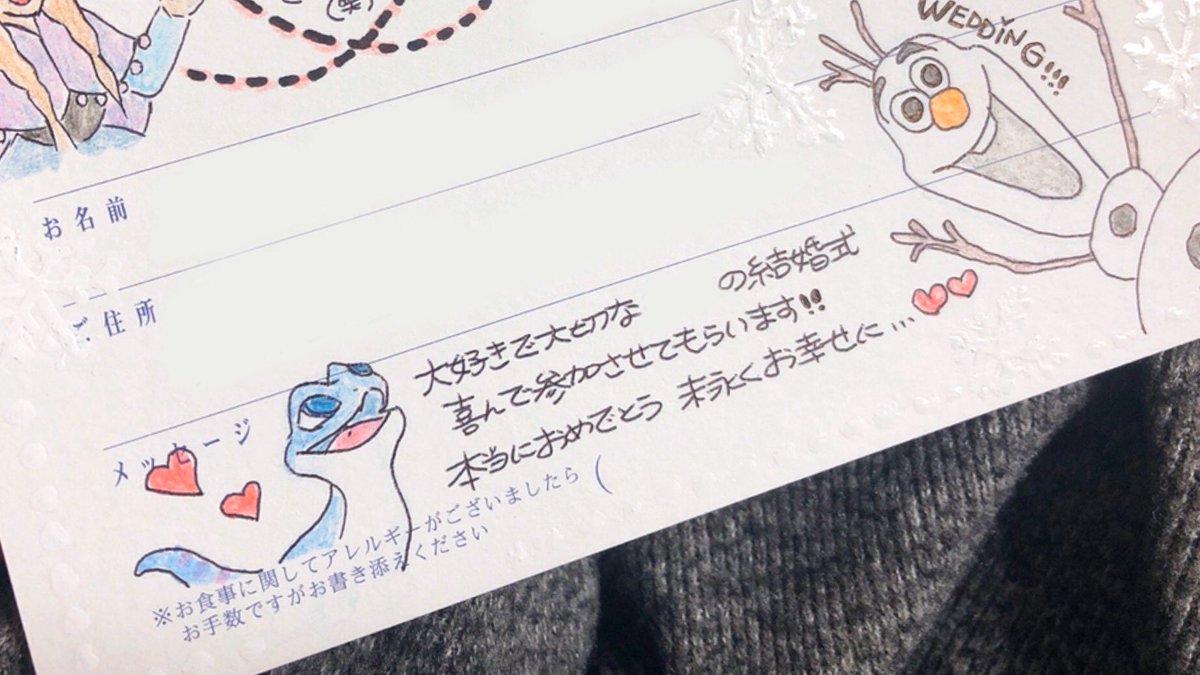 (笑)
WEDDING!!!
お名前
ご住所
メッセージ
大好きで大切な の結婚式
喜んで参加させてもらいます!!
本当におめでとう 末永くお幸せに...
※お食事に関してアレルギーがございましたら (
お手数ですがお書き添えください